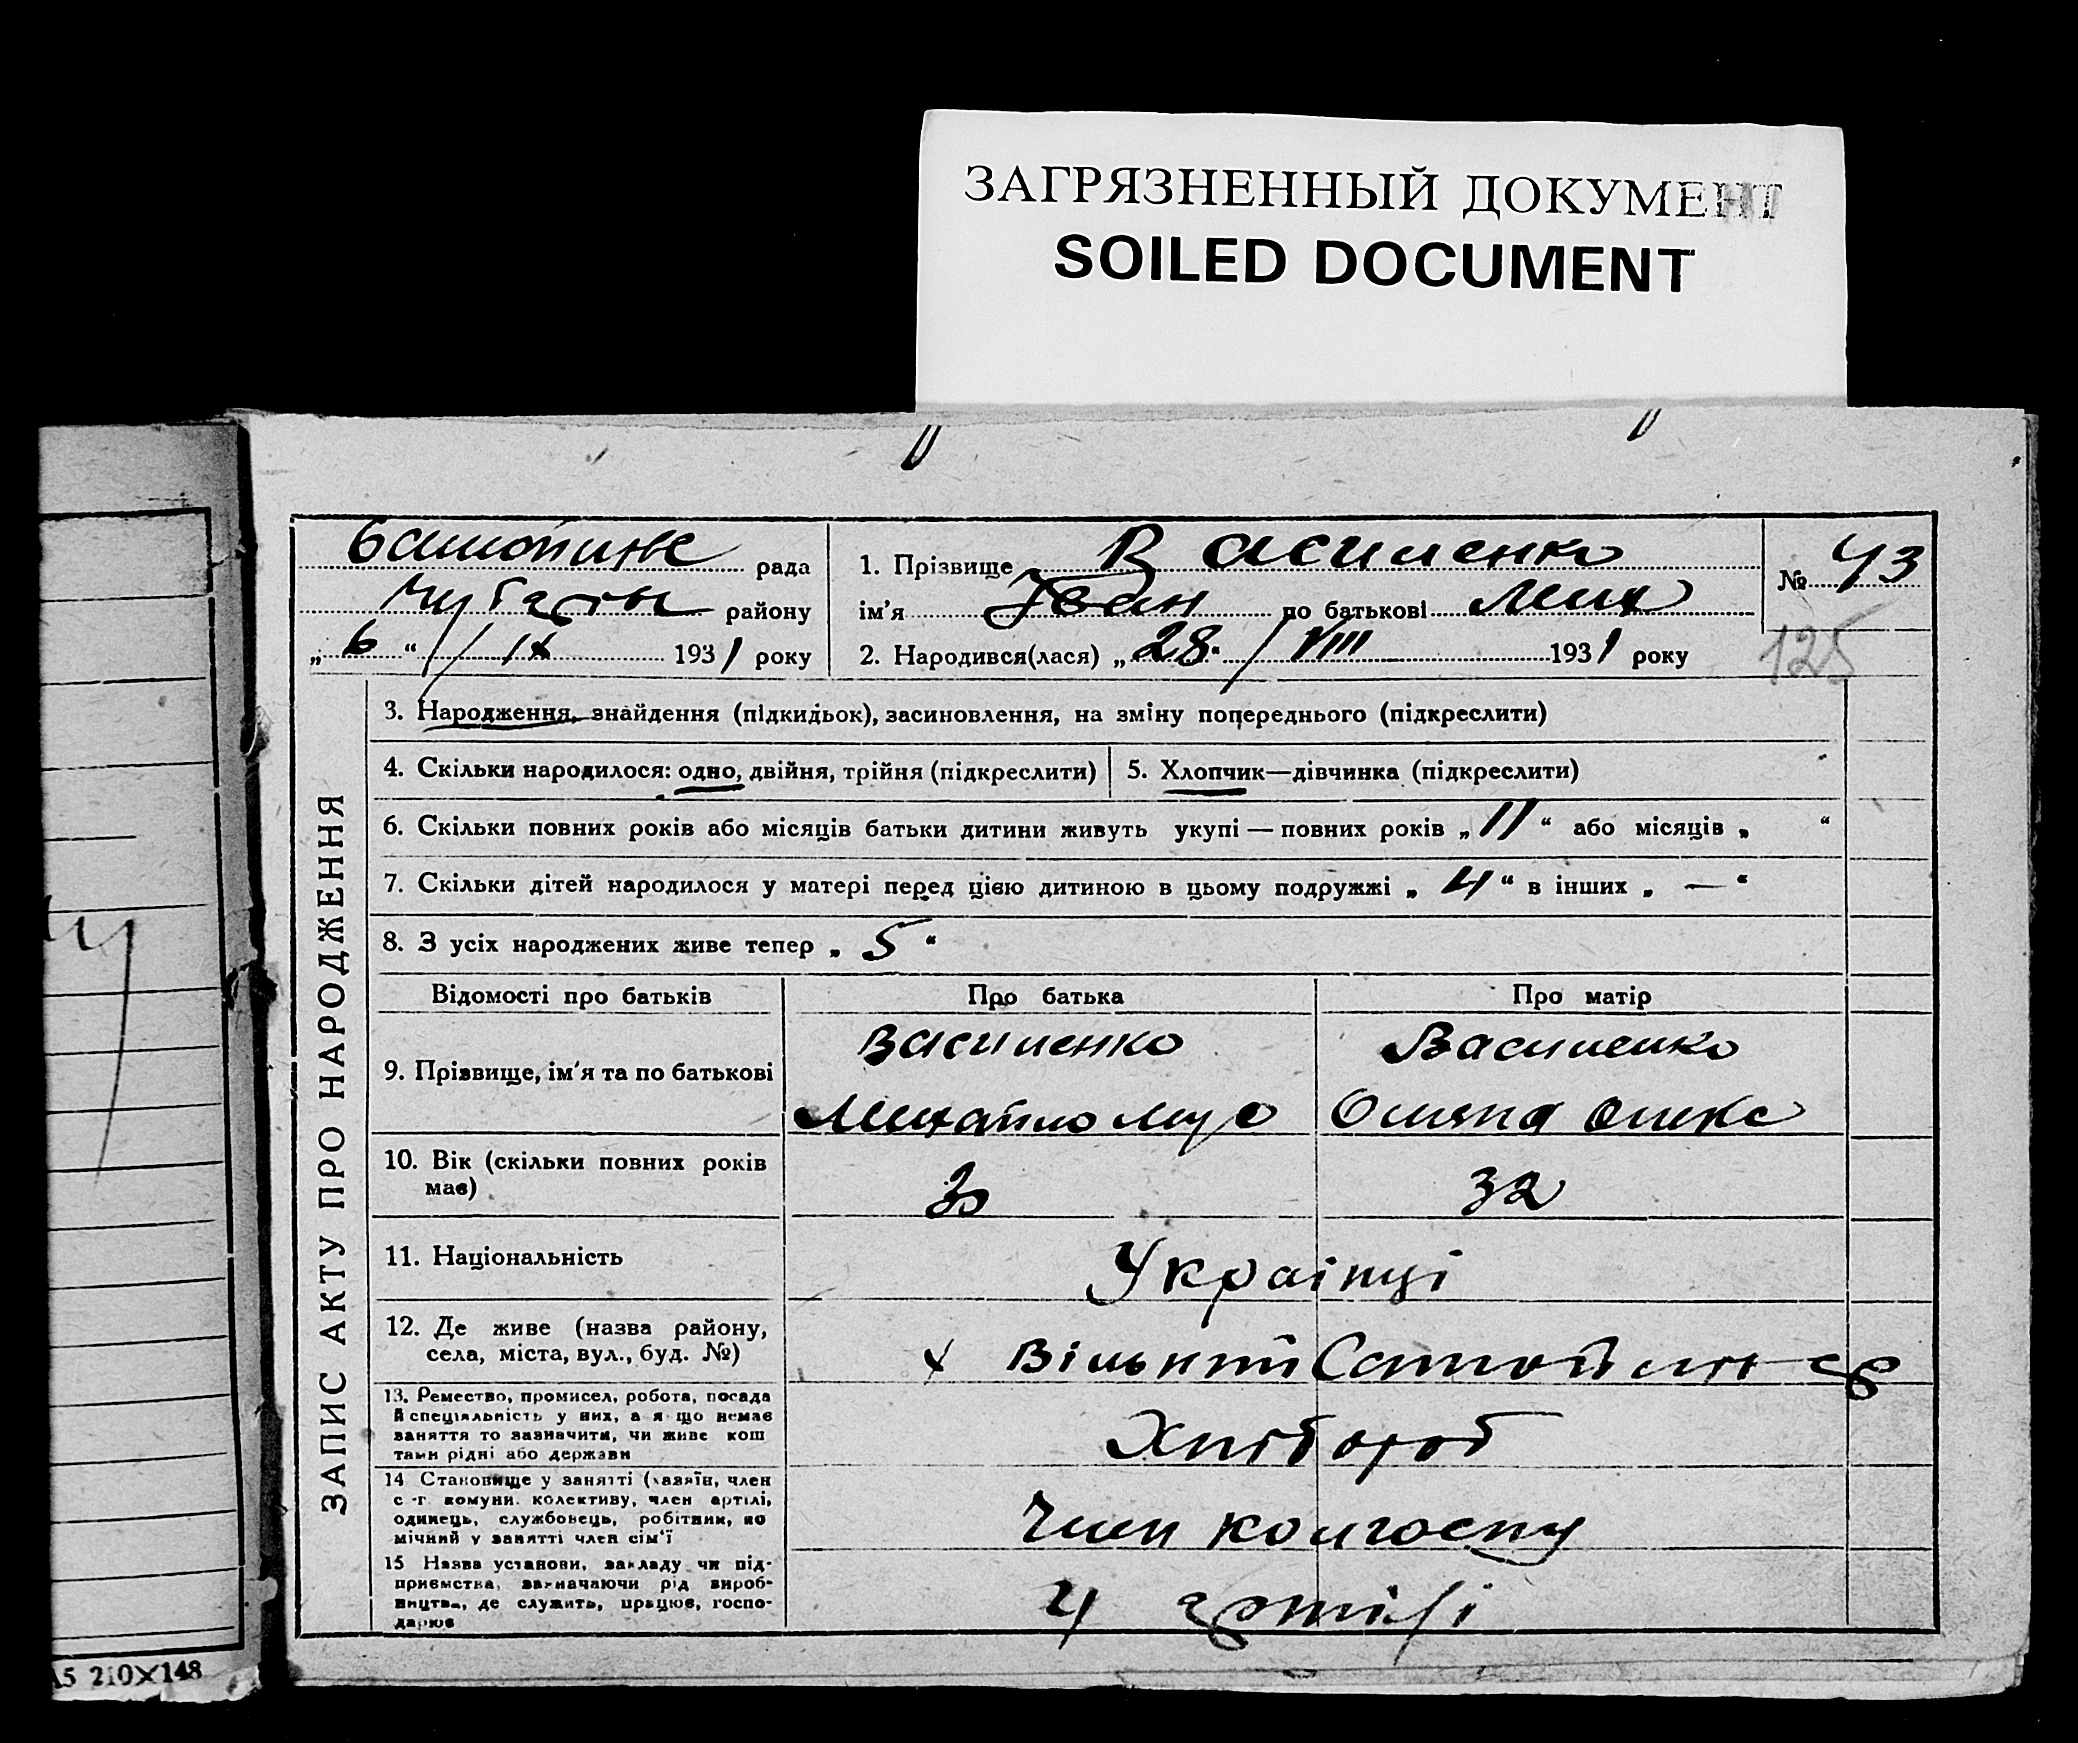 ЗАГРЯЗНЕННЫЙ ДОКУМЕНТ
SOILED DOCUMENT
рада
району
„ 6 “ / IX 1931 року
1. Прізвище Василенко
ім’я Іван по батькові Мих
2. Народився(лася) „ 28. / VIII 1931 року
№ 43
125
ЗАПИС АКТУ ПРО НАРОДЖЕННЯ
3. Народження, знайдення (підкидьок), засиновлення, на зміну попереднього (підкреслити)
4. Скільки народилося: одно, двійня, трійня (підкреслити)
5. Хлопчик—дівчинка (підкреслити)
6. Скільки повних років або місяців батьки дитини живуть укупі — повних років „ 11 “ або місяців „ “
7. Скільки дітей народилося у матері перед цією дитиною в цьому подружжі „ 4 “ в інших „ — “
8. З усіх народжених живе тепер „ 5 “
Відомості про батьків Про батька Про матір
9. Прізвище, ім’я та по батькові
Василенко
Михайло
Василенко
Олекс
10. Вік (скільки повних років
має)
30
32
11. Національність
Українці
12. Де живе (назва району,
села, міста, вул., буд. №)
х Вільний
13. Ремество, промисел, робота, посада
й спеціяльність у них, а я що немає
заняття то зазначити, чи живе кош
тами рідні або держави
Хлібороб
14 Становище у занятті (хазяїн, член
с -г. комуни. колективу, член артілі,
одинець, службовець, робітник, по
мічний у занятті член сім’ї
Член колгоспу
15 Назва установи, закладу чи під-
приємства, зазначаючи рід вироб-
ництва, де служить, працює, госпо-
дарює
У артілі
А5 210×148